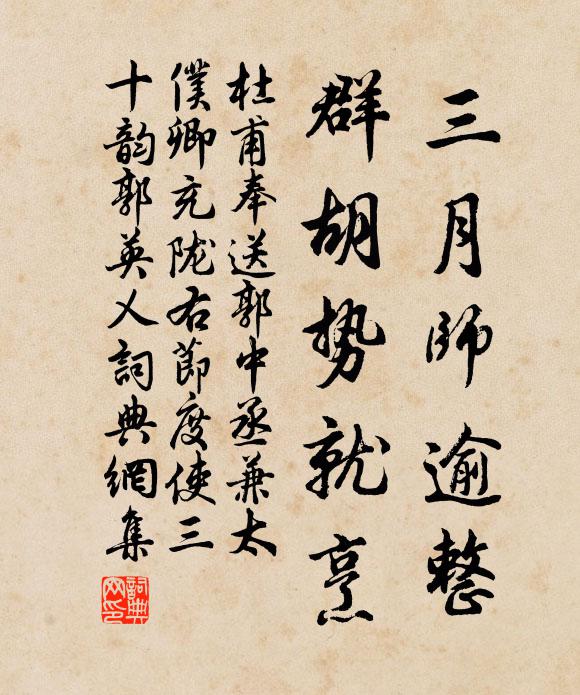 三月師逾整
群胡势就烹
杜甫奉送郭中丞兼太
僕卿充陇右節度使三
十韵郭英乂詞典網集
詞典
网印